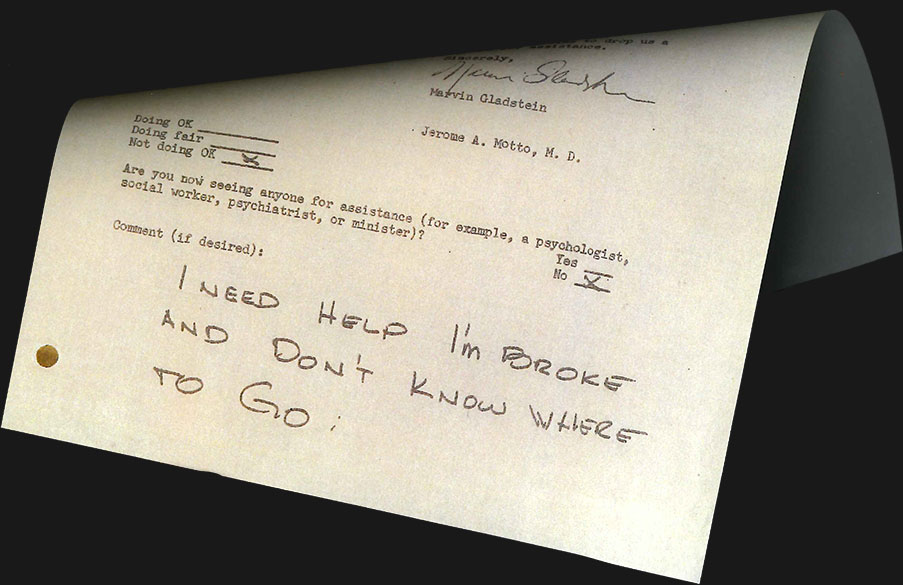 to drop us a
assistance.
Sincerely,
Marvin Gladstein
Jerome A. Motto, M. D.
Doing OK
Doing fair
Not doing OK X
Are you now seeing anyone for assistance (for example, a psychologist,
social worker, psychiatrist, or minister)?
Yes
No X
Comment (if desired):
I NEED HELP I'm BROKE
AND DON'T KNOW WHERE
TO GO.